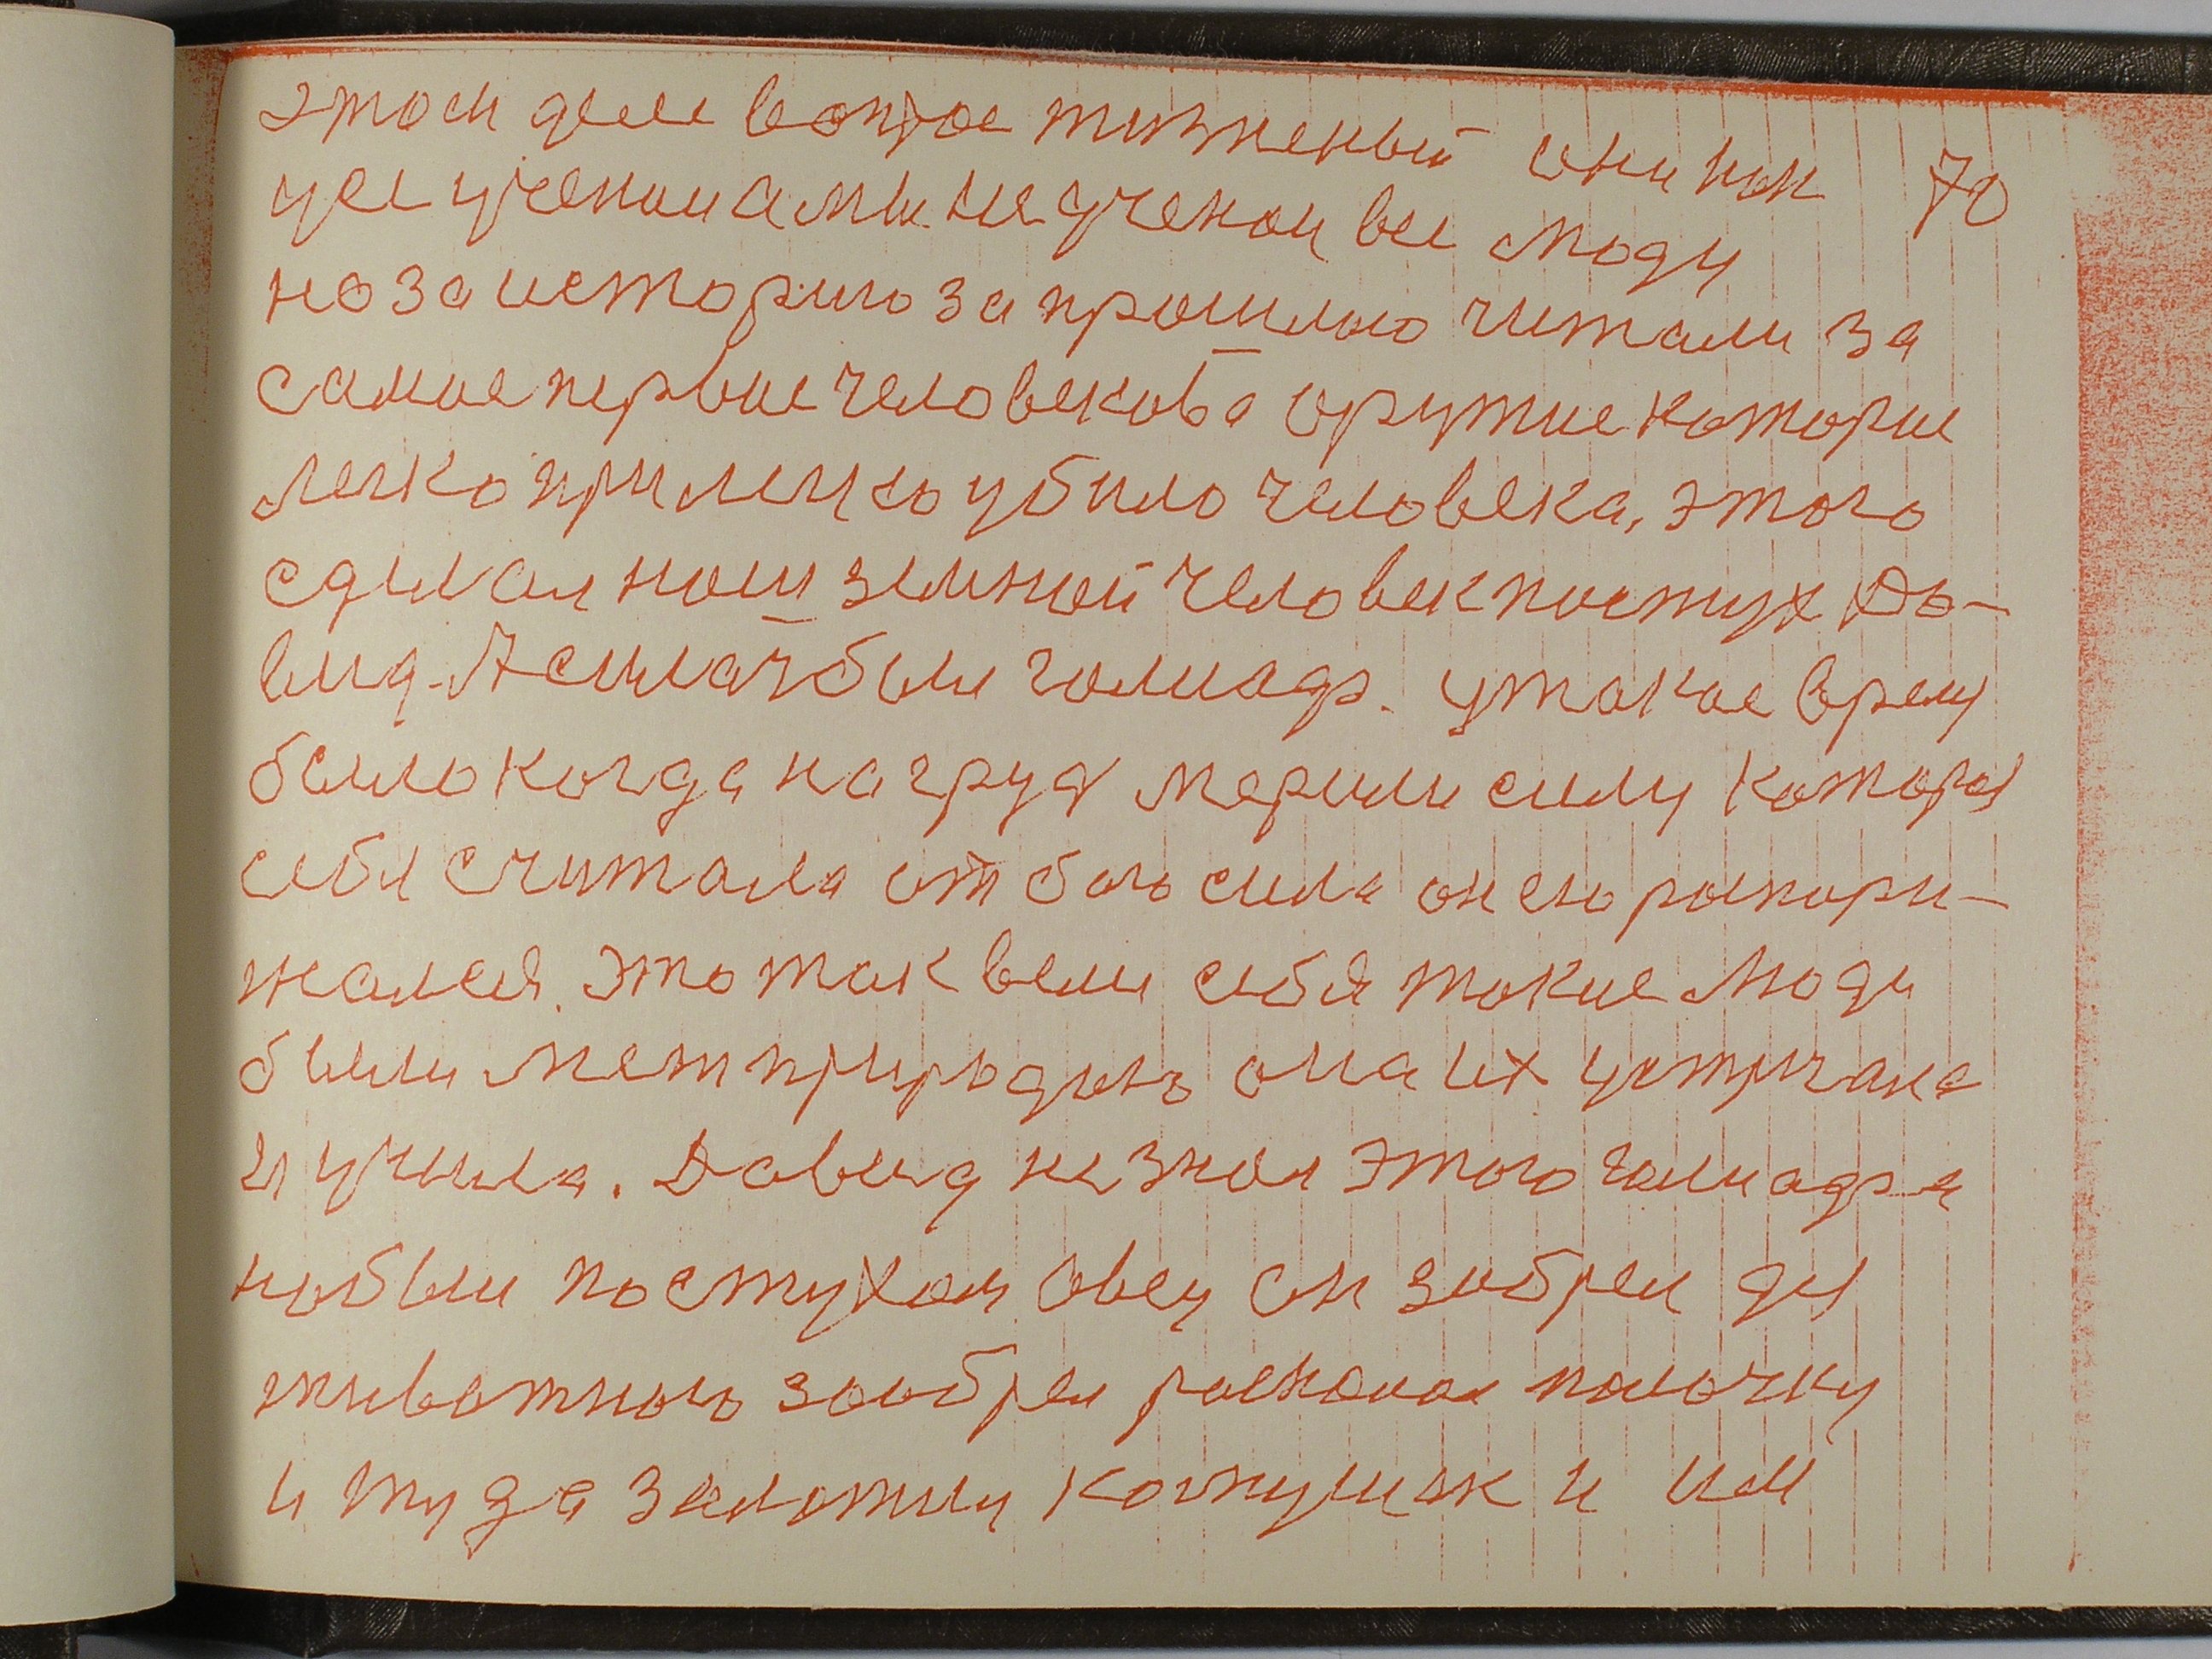 этом деле вопрос тизненый они как 70
уси ученои а мы не ученои вси люди
но за историю за прошлыо читали за
самое первие человекова орутие которие
легко прилецко убило человека, этого
сделал наш земной человек пастух Да-
вид. А силач был голиадр. у такое врему
было когда на груду мерили силу которая
себя считала от бога сила он ею распори-
жался. Это так вели себя такие люди
были мет природою она их устричана
и учила. Давид не знал этого голиадра
но был пастухом овец он зобрел ду
тивотного зообрел расколол палочку
и туда залотил комушек и им